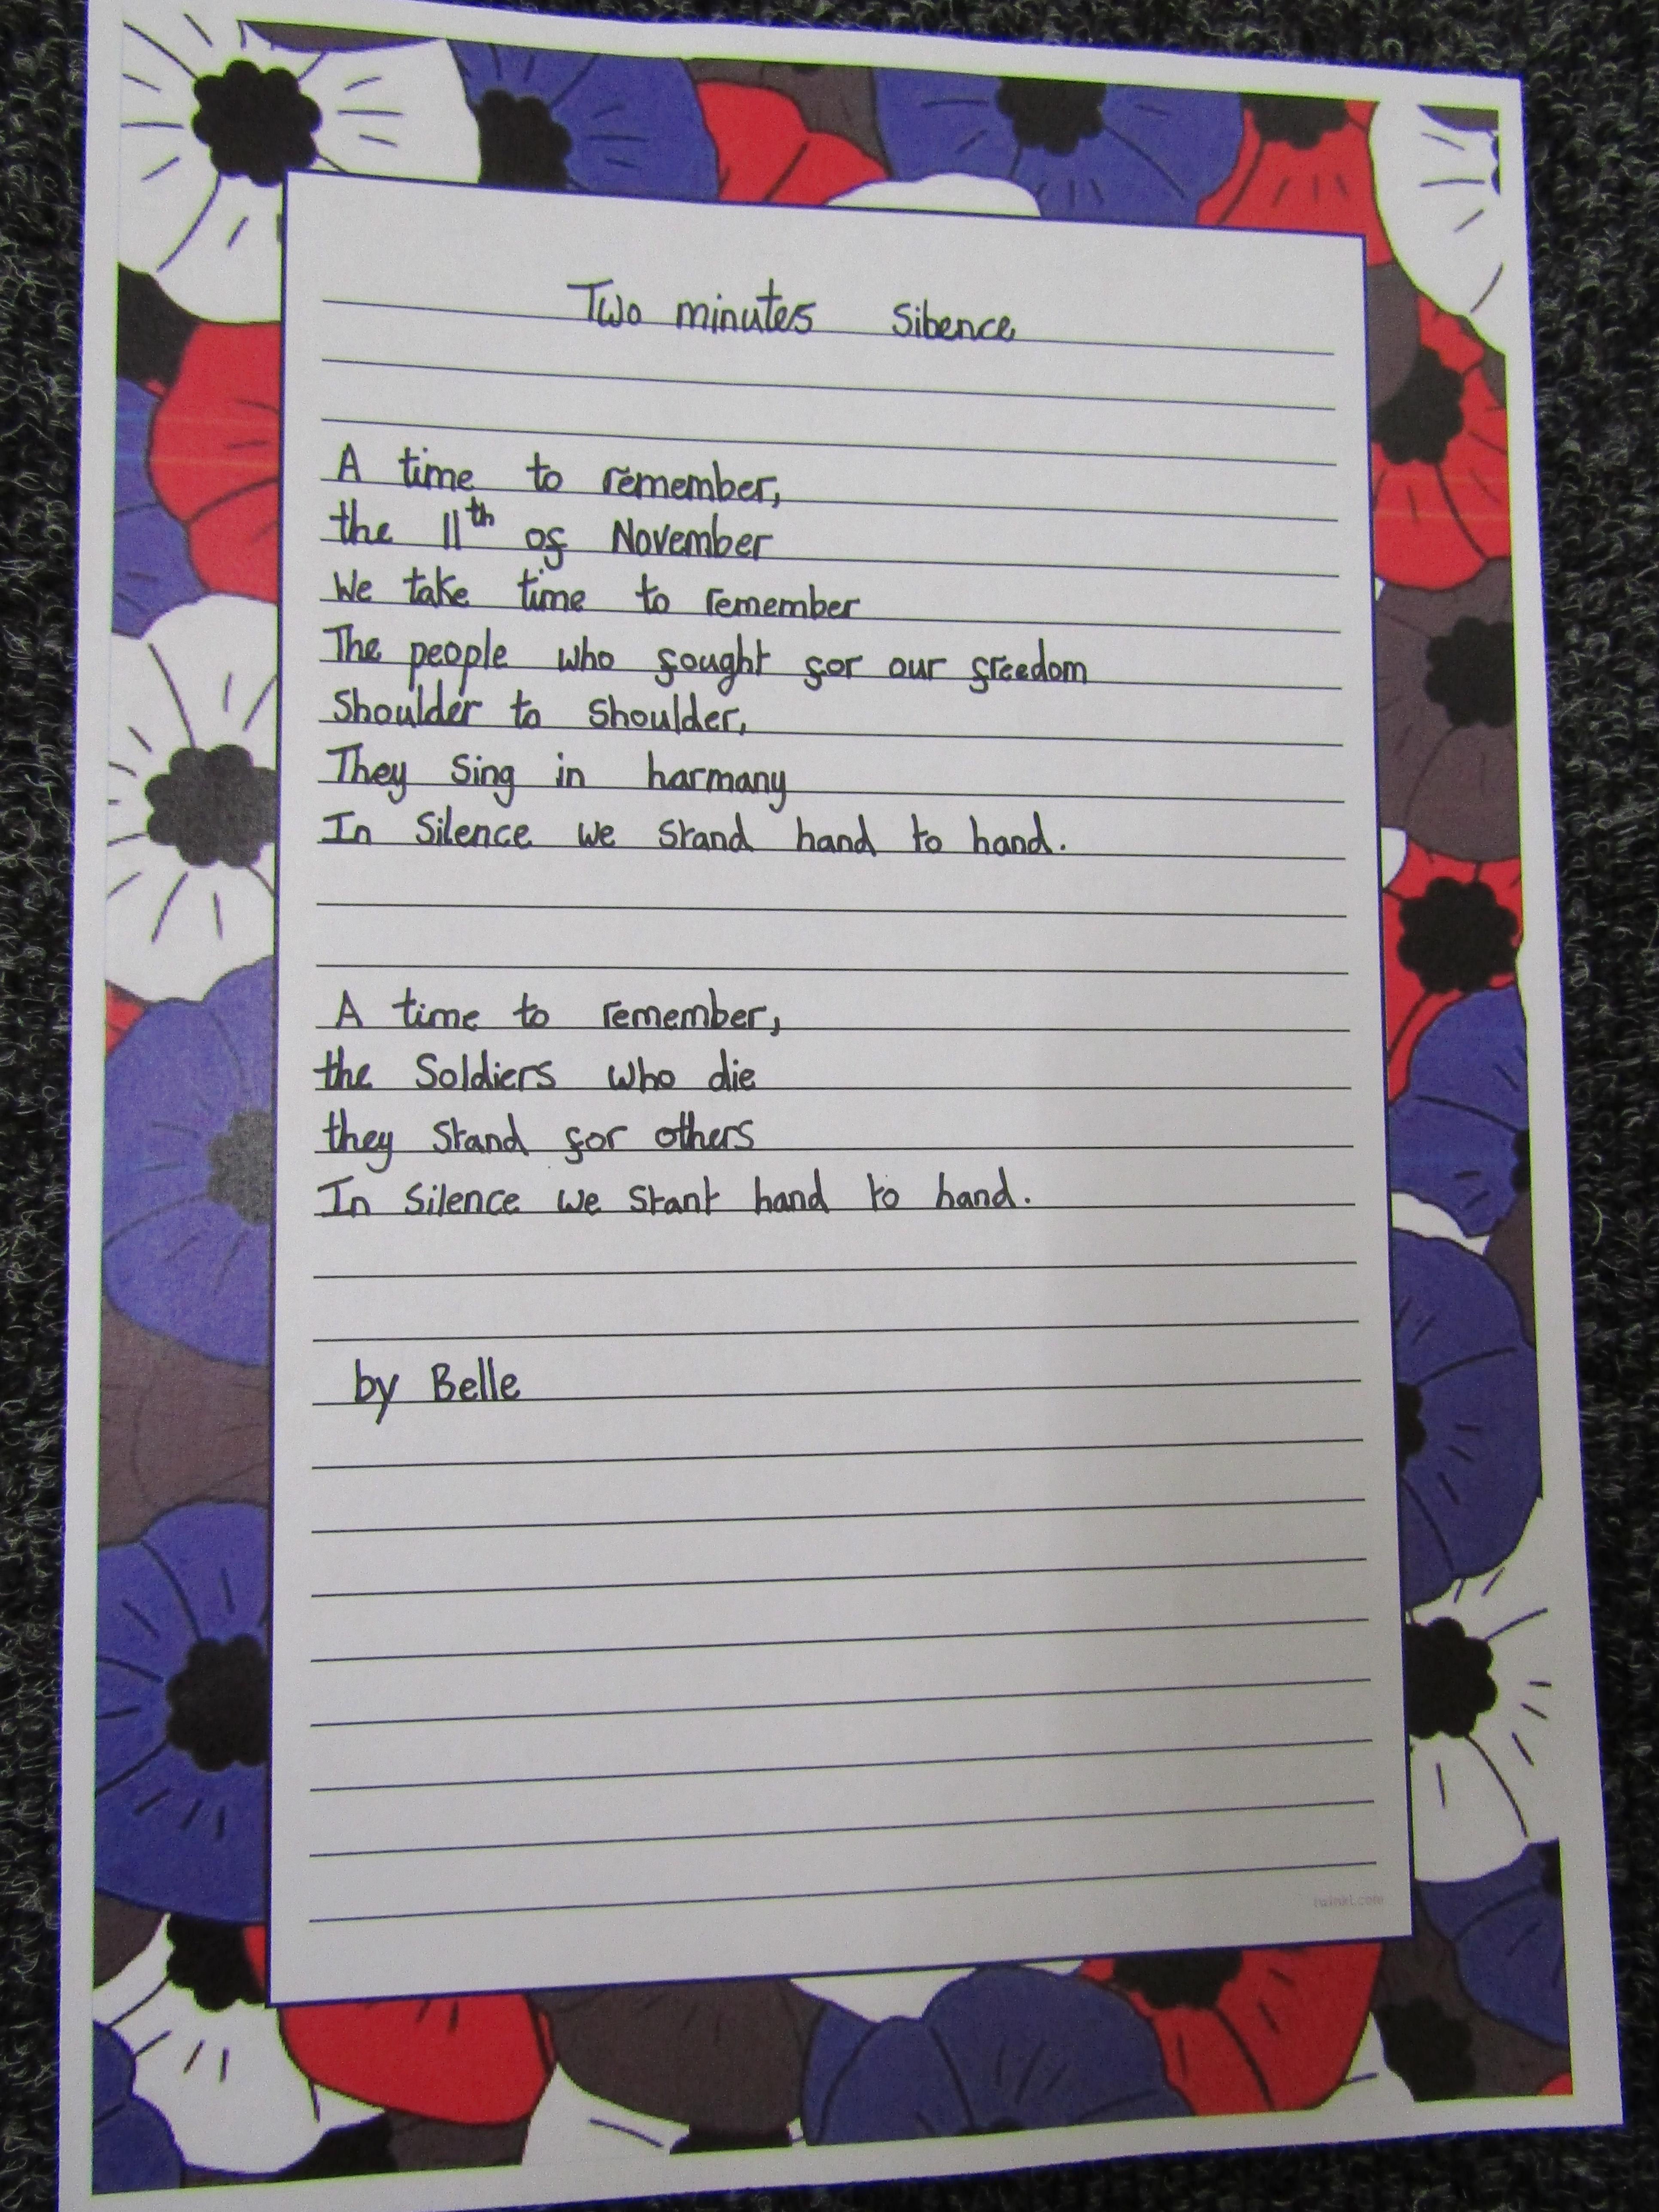 Two minutes Silence
A time to remember,
the 11th of November
We take time to remember
The people who fought for our freedom
Shoulder to Shoulder,
They Sing in harmany
In Silence we stand hand to hand.
A time to remember,
the Soldiers who die
they Stand for others
In Silence we stant hand to hand.
by Belle
twinkl.com